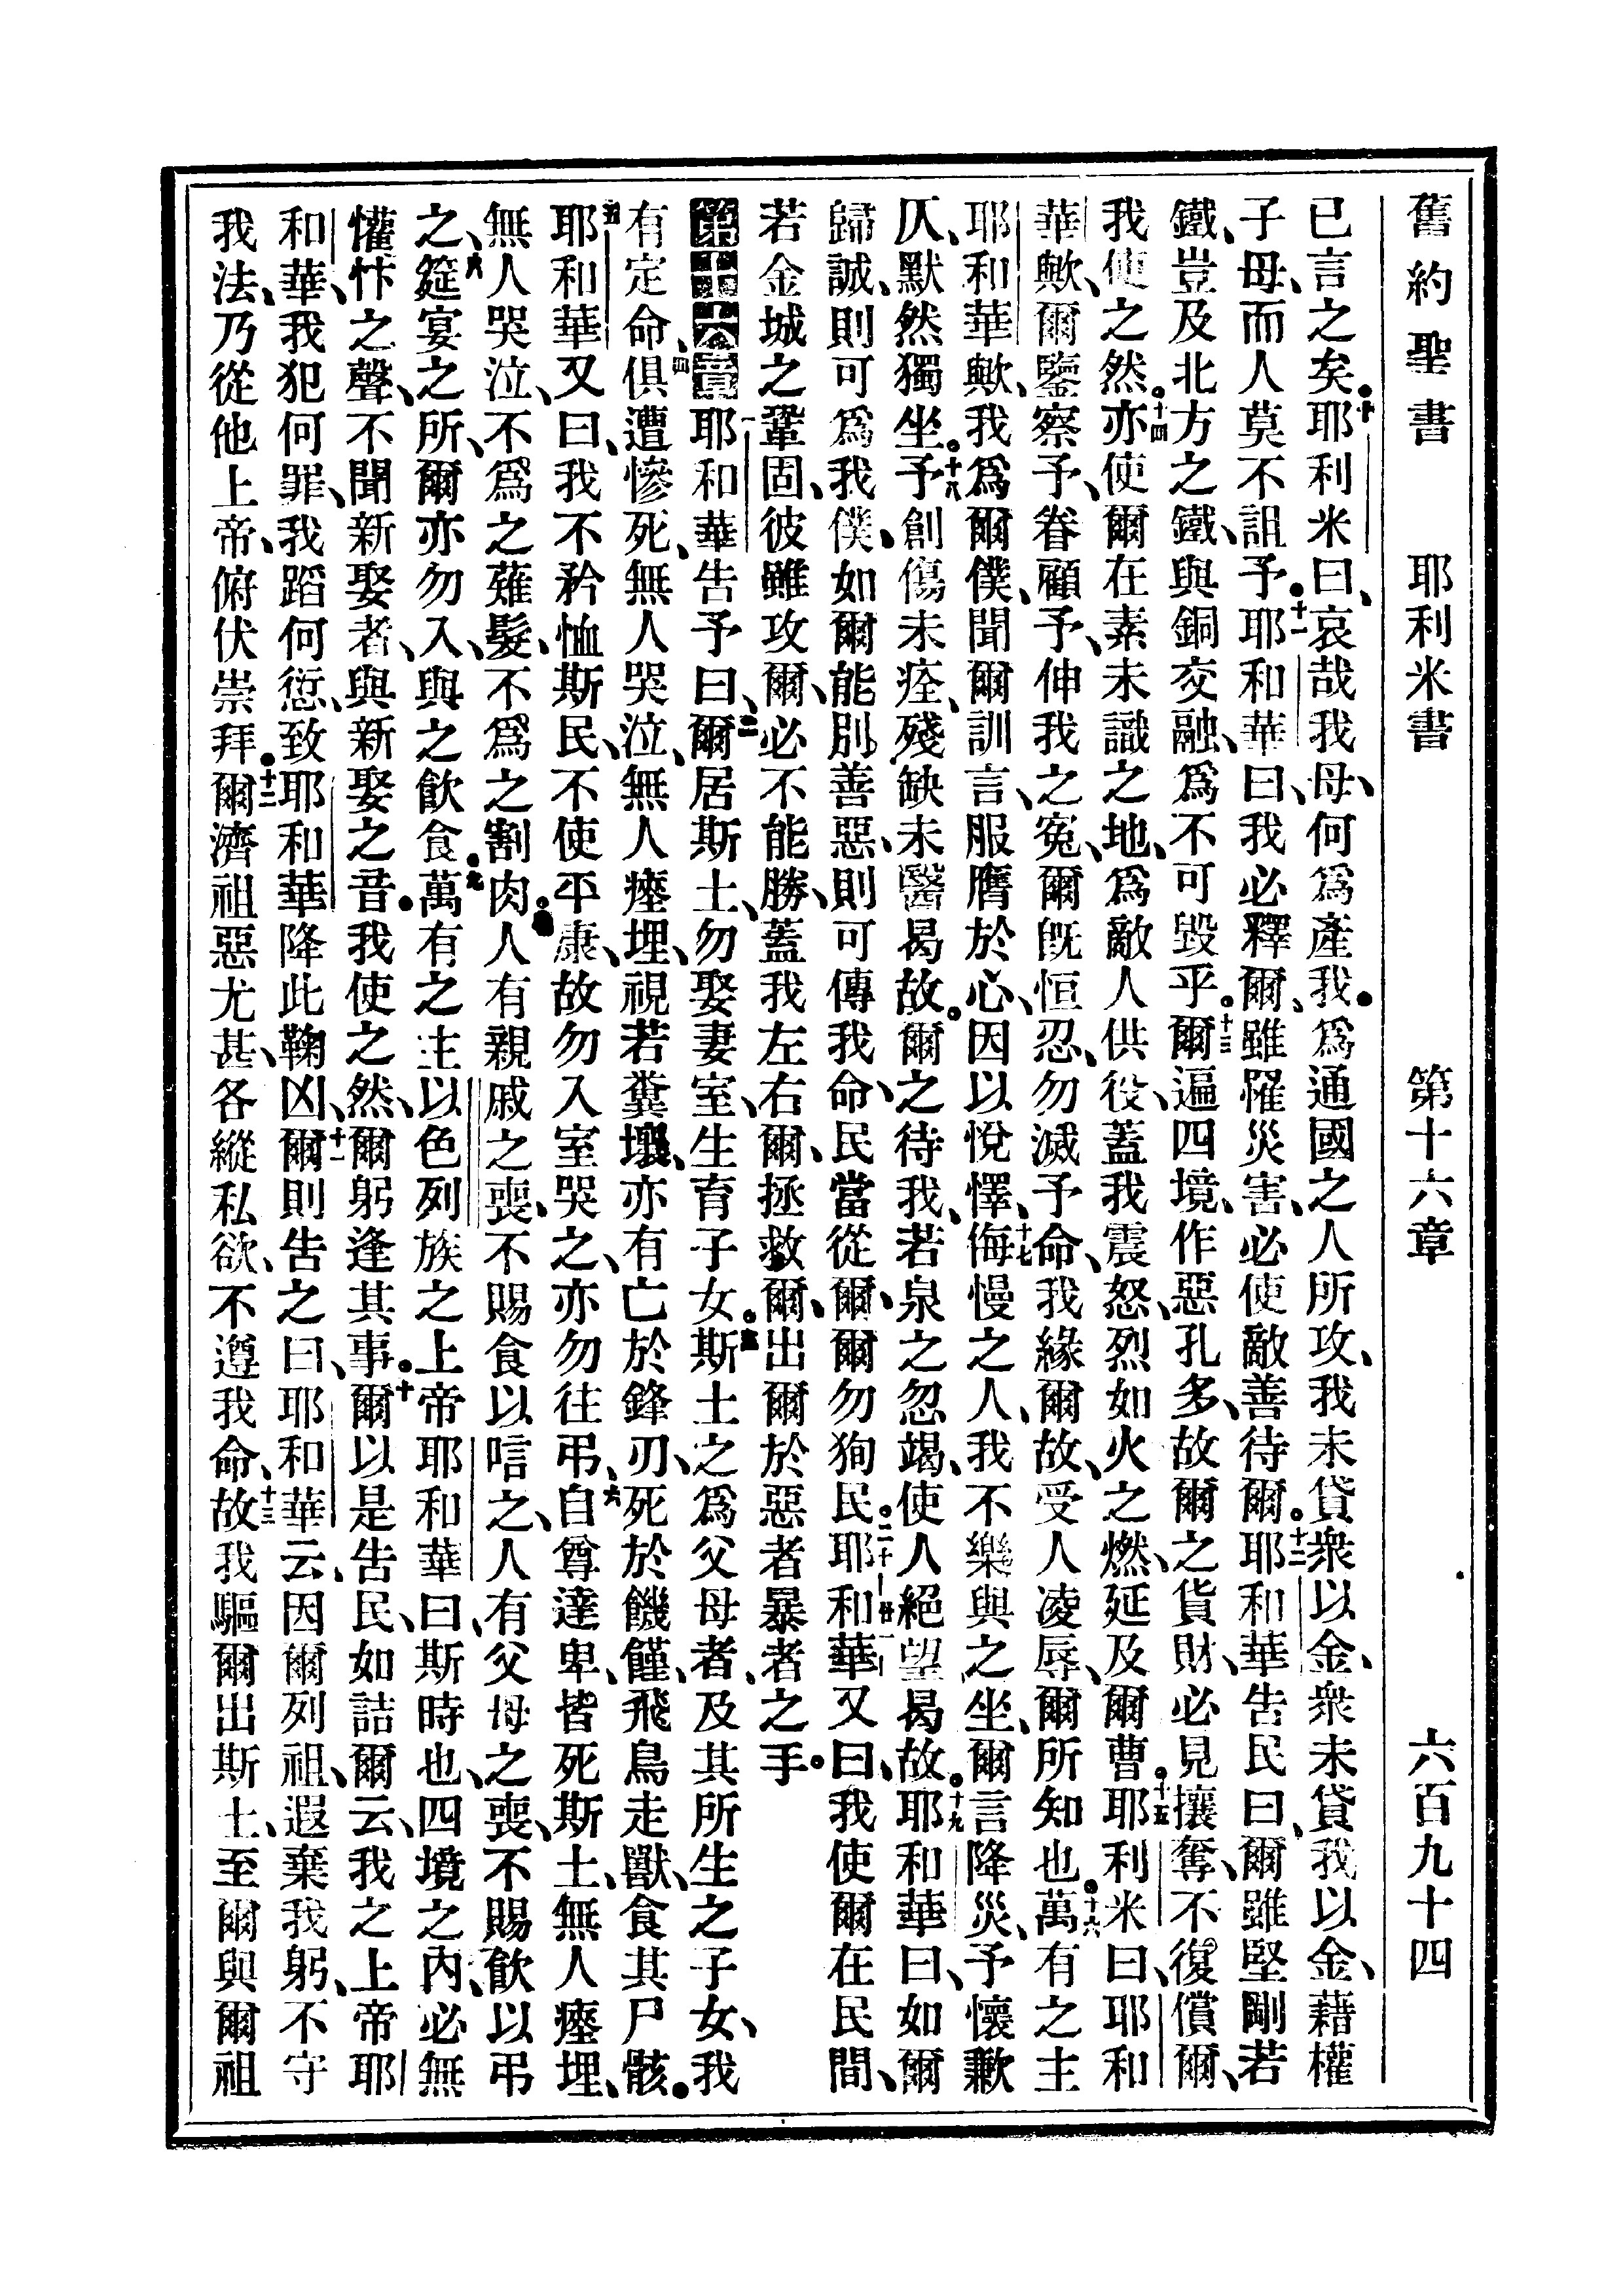 舊約聖書 耶利米書 第十六章 六百九十四
已言之矣。十耶利米曰、哀哉我母、何爲產我。爲通國之人所攻、我未貸衆以金、衆未貸我以金、藉權
子母、而人莫不詛予。十一耶和華曰、我必釋爾、雖罹災害、必使敵善待爾。十二耶和華告民曰、爾雖堅剛若
鐵、豈及北方之鐵、與銅交融、爲不可毀乎。十三爾逼四境、作惡孔多、故爾之貨財、必見攘奪、不復償爾、
我使之然。十四亦使爾在素未識之地、爲敵人供役、蓋我震怒、烈如火之燃、延及爾曹。十五耶利米曰、耶和
華歟、爾鑒察予、眷顧予、伸我之寃、爾旣恒忍、勿滅予命、我緣爾故、受人凌辱、爾所知也。十六萬有之主
耶和華歟、我爲爾僕、聞爾訓言、服膺於心、因以悅懌、十七侮慢之人、我不樂與之坐、爾言降災、予懷歉
仄、默然獨坐。十八予創傷未痊、殘缺未醫曷故。爾之待我、若泉之忽竭、使人絕望曷故。十九耶和華曰、如爾
歸誠、則可爲我僕、如爾能別善惡、則可傳我命、民當從爾、爾勿狥民。二十 廿一耶和華又曰、我使爾在民間、
若金城之鞏固、彼雖攻爾、必不能勝、蓋我左右爾、拯救爾、出爾於惡者暴者之手。
第十六章 一耶和華告予曰、二爾居斯土、勿娶妻室、生育子女。三斯土之爲父母者、及其所生之子女、我
有定命、四俱遭慘死、無人哭泣、無人瘞埋、視若糞壤、亦有亡於鋒刃、死於饑饉、飛鳥走獸、食其尸骸。
五耶和華又曰、我不矜恤斯民、不使平康、故勿入室哭之、亦勿往弔、六自尊達卑、皆死斯土、無人瘞埋、
無人哭泣、不爲之薙髮、不爲之割肉。人有親戚之喪、不賜食以唁之、人有父母之喪、不賜飮以弔
之、八筵宴之所、爾亦勿入、與之飮食。九萬有之主以色列族之上帝耶和華曰、斯時也、四境之內、必無
懽忭之聲、不聞新娶者、與新娶之音。我使之然、爾躬逢其事。十爾以是告民、如詰爾云、我之上帝耶
和華、我犯何罪、我蹈何愆、致耶和華降此鞠凶、十一爾則告之曰、耶和華云、因爾列祖、遐棄我躬、不守
我法、乃從他上帝、俯伏崇拜。十二爾濟祖惡尤甚、各縱私欲、不遵我命、十三故我驅爾出斯土、至爾與爾祖